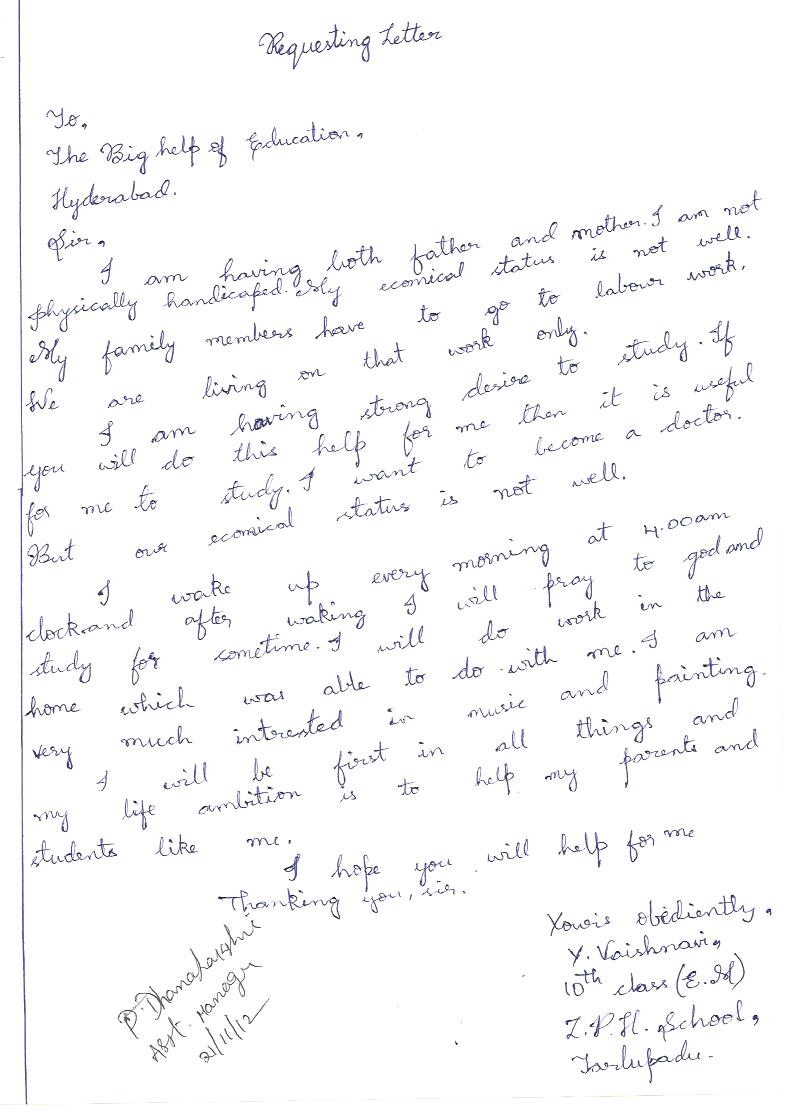 Requesting Letter
To,
The Big help of Education,
Hyderabad.
Sir,
I am having both father and mother. I am not
physically handicaped. My ecomical status is not well.
My family members have to go to labour work.
We are living on that work only.
I am having strong desire to study. If
you will do this help for me then it is useful
for me to study. I want to become a doctor.
But our ecomical status is not well.
I wake up every morning at 4.00am
clock.and after waking I will pray to god and
study for sometime. I will do work in the
home which was able to do with me. I am
very much intrested in music and painting.
I will be first in all things and
my life ambition is to help my parents and
students like me.
I hope you will help for me
Thanking you, sir.
Yours obediently,
Y. Vaishnavi,
10th class (E.M)
Z.P.H. School,
Tarlupadu.
P. Dhanalakshmi
Asst. Manager
21/11/12